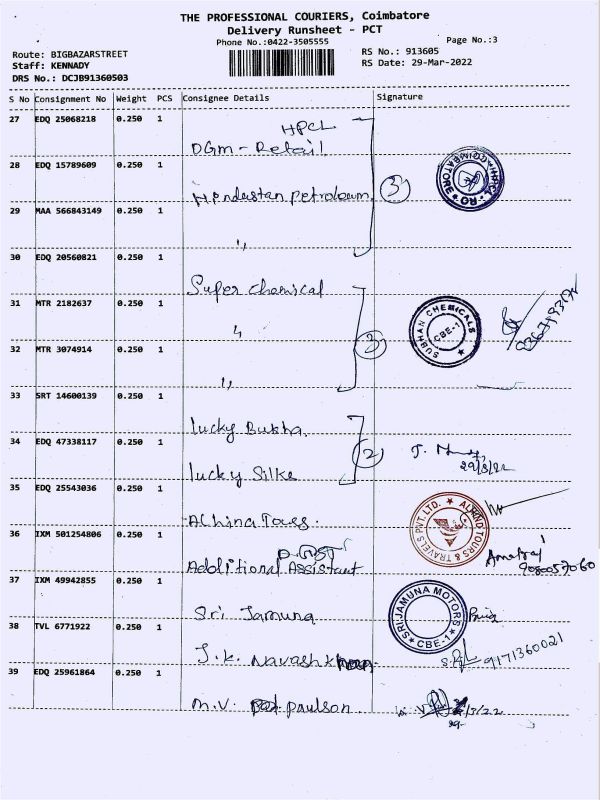 THE PROFESSIONAL COURIERS, Coimbatore
Delivery Runsheet - PCT
Phone No.:0422-3505555
Page No.:3
Route: BIGBAZARSTREET
RS No.: 913605
Staff: KENNADY
RS Date: 29-Mar-2022
DRS No.: DCJB91360503
S No Consignment No Weight PCS Consignee Details Signature
27 EDQ 25068218 0.250 1
HPCL
DGM - Retail
28 EDQ 15789609 0.250 1
Hindustan petroleum
3
29 MAA 566843149 0.250 1
"
30 EDQ 20560821 0.250 1
Super chemical
31 MTR 2182637 0.250 1
"
SUBHAN CHEMICALS
CBE-1
32 MTR 3074914 0.250 1
3
"
33 SRT 14600139 0.250 1
lucky
34 EDQ 47338117 0.250 1
2
lucky Silks
35 EDQ 25543036 0.250 1
TOURS & TRAVELS PVT. LTD.
36 IXM 501254806 0.250 1
Additional Assistant
9080057060
37 IXM 49942855 0.250 1
Sri Jamuna
SRI JAMUNA MOTORS
CBE-1
38 TVL 6771922 0.250 1
J.K. Navash
9171360021
39 EDQ 25961864 0.250 1
M.V. paulson